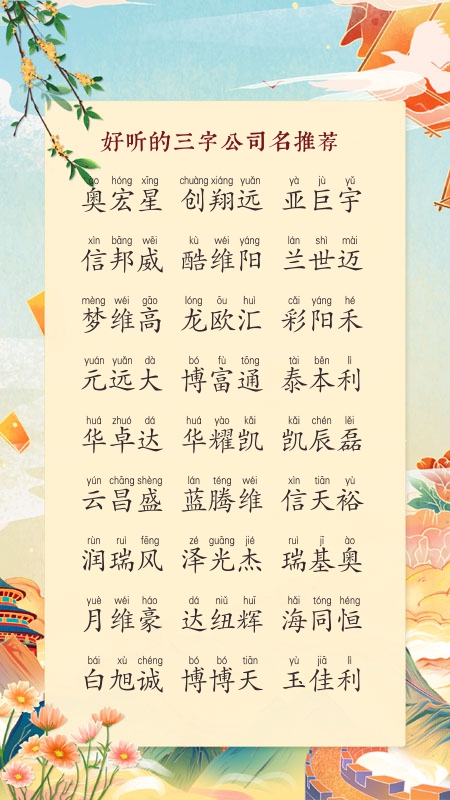 好听的三字公司名推荐
ào hóng xīng chuàng xiáng yuǎn yà jù yǔ
奥宏星 创翔远 亚巨宇
xìn bāng wēi kù wéi yáng lán shì mài
信邦威 酷维阳 兰世迈
mèng wéi gāo lóng ōu huì cǎi yáng hé
梦维高 龙欧汇 彩阳禾
yuán yuǎn dà bó fù tōng tài běn lì
元远大 博富通 泰本利
huá zhuó dá huá yào kǎi kǎi chén lěi
华卓达 华耀凯 凯辰磊
yún chāng shèng lán téng wéi xìn tiān yù
云昌盛 蓝腾维 信天裕
rùn ruì fēng zé guāng jié ruì jī ào
润瑞风 泽光杰 瑞基奥
yuè wéi háo dá niǔ huī hǎi tóng héng
月维豪 达纽辉 海同恒
bái xù chéng bó bó tiān yù jiā lì
白旭诚 博博天 玉佳利